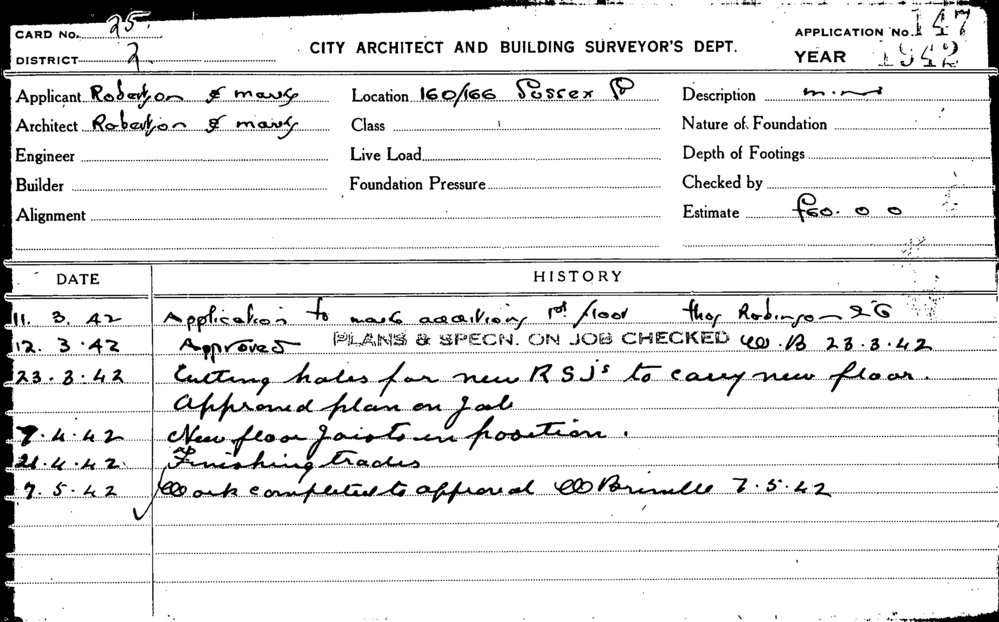 CARD No. 25.
APPLICATION No. 147
DISTRICT 2.
CITY ARCHITECT AND BUILDING SURVEYOR'S DEPT.
YEAR 1942
Applicant Robertson & marks Location 160/166 Sussex St Description
Architect Robertson & marks Class Nature of Foundation
Engineer Live Load Depth of Footings
Builder Foundation Pressure Checked by
Alignment Estimate £60. 0 0
DATE HISTORY
11. 3. 42 Application to make additions 1st floor Robinson
12. 3. 42 Approved PLANS & SPECN. ON JOB CHECKED W.B 23.3.42
23. 3. 42 Cutting holes for new RSJs to carry new floor.
Approved plan on Job
7. 4. 42 New floor Joists in position.
21. 4. 42. Finishing trades
7. 5. 42 Work completed to approval W Brimble 7. 5. 42